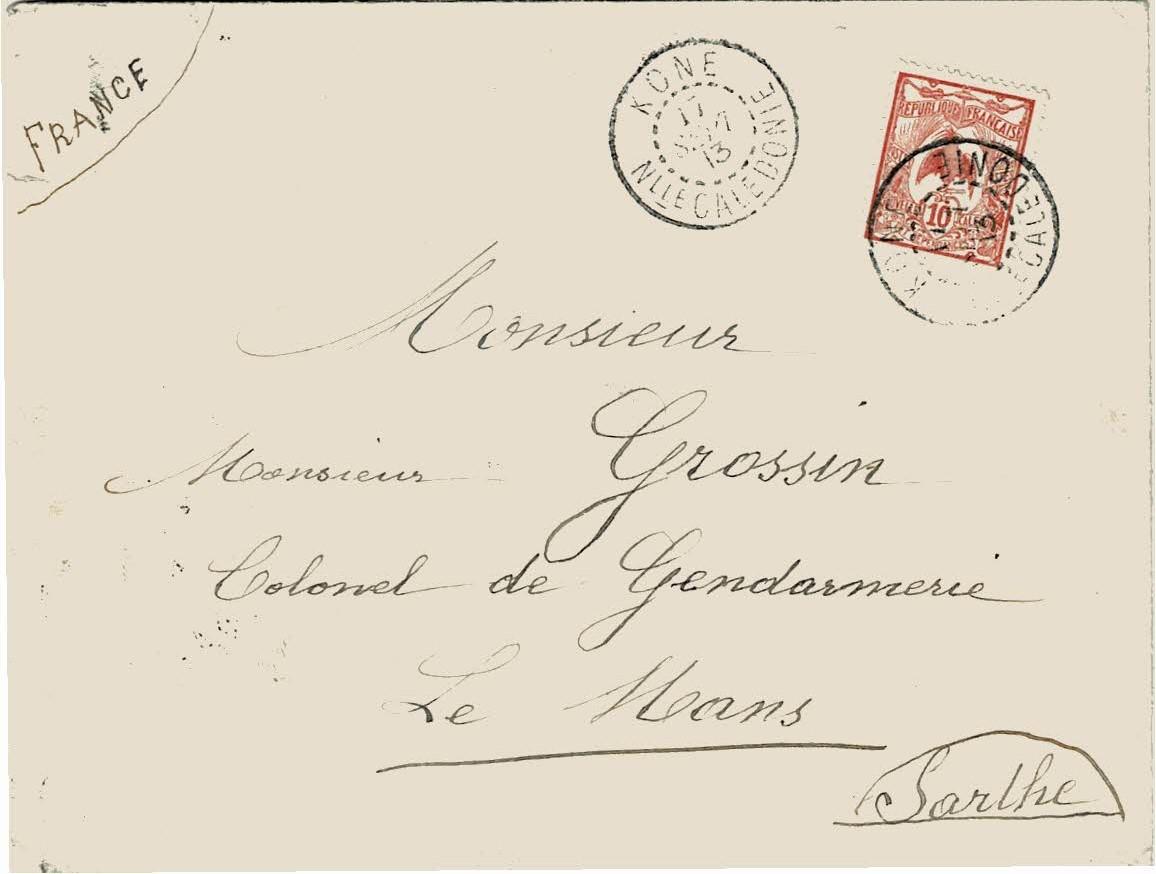 FRANCE
KONE
17
13
NLLE CALEDONIE
REPUBLIQUE FRANÇAISE
10
KONE
CALEDONIE
Monsieur
Monsieur Grossin
Colonel de Gendarmerie
Le Mans
Sarthe